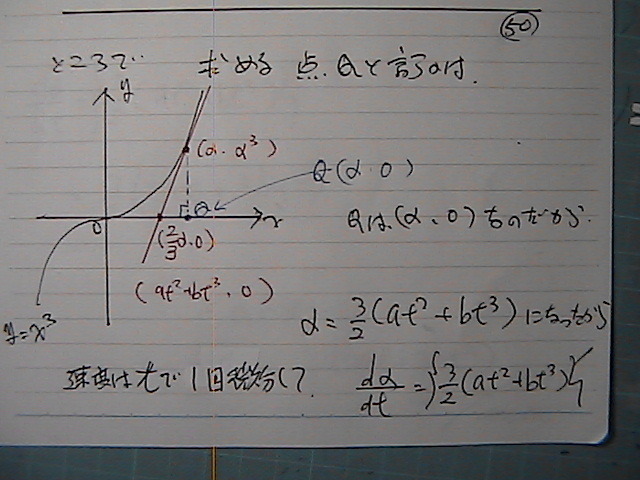 50
ところで 求める点Qと言うのは.
y
(α, α³)
Q(α, 0)
Q
0
x
(2/3 α, 0)
Qは,(α, 0)なのだから.
(at²+bt³, 0)
y=x³
α = 3/2 (at²+bt³)になったから
速度はtで1回微分して. dα/dt = {3/2 (at²+bt³)}'